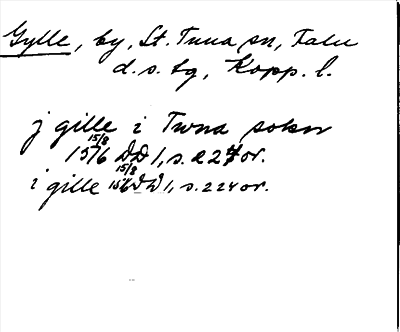 Gylle, by, St. Tuna sn, Falu
d. s. tg, Kopp. l.
j gille i Twna sokn
15/8 1576 DD 1, s. 224 or.
i gille 15/8 1576 DD 1, s. 224 or.